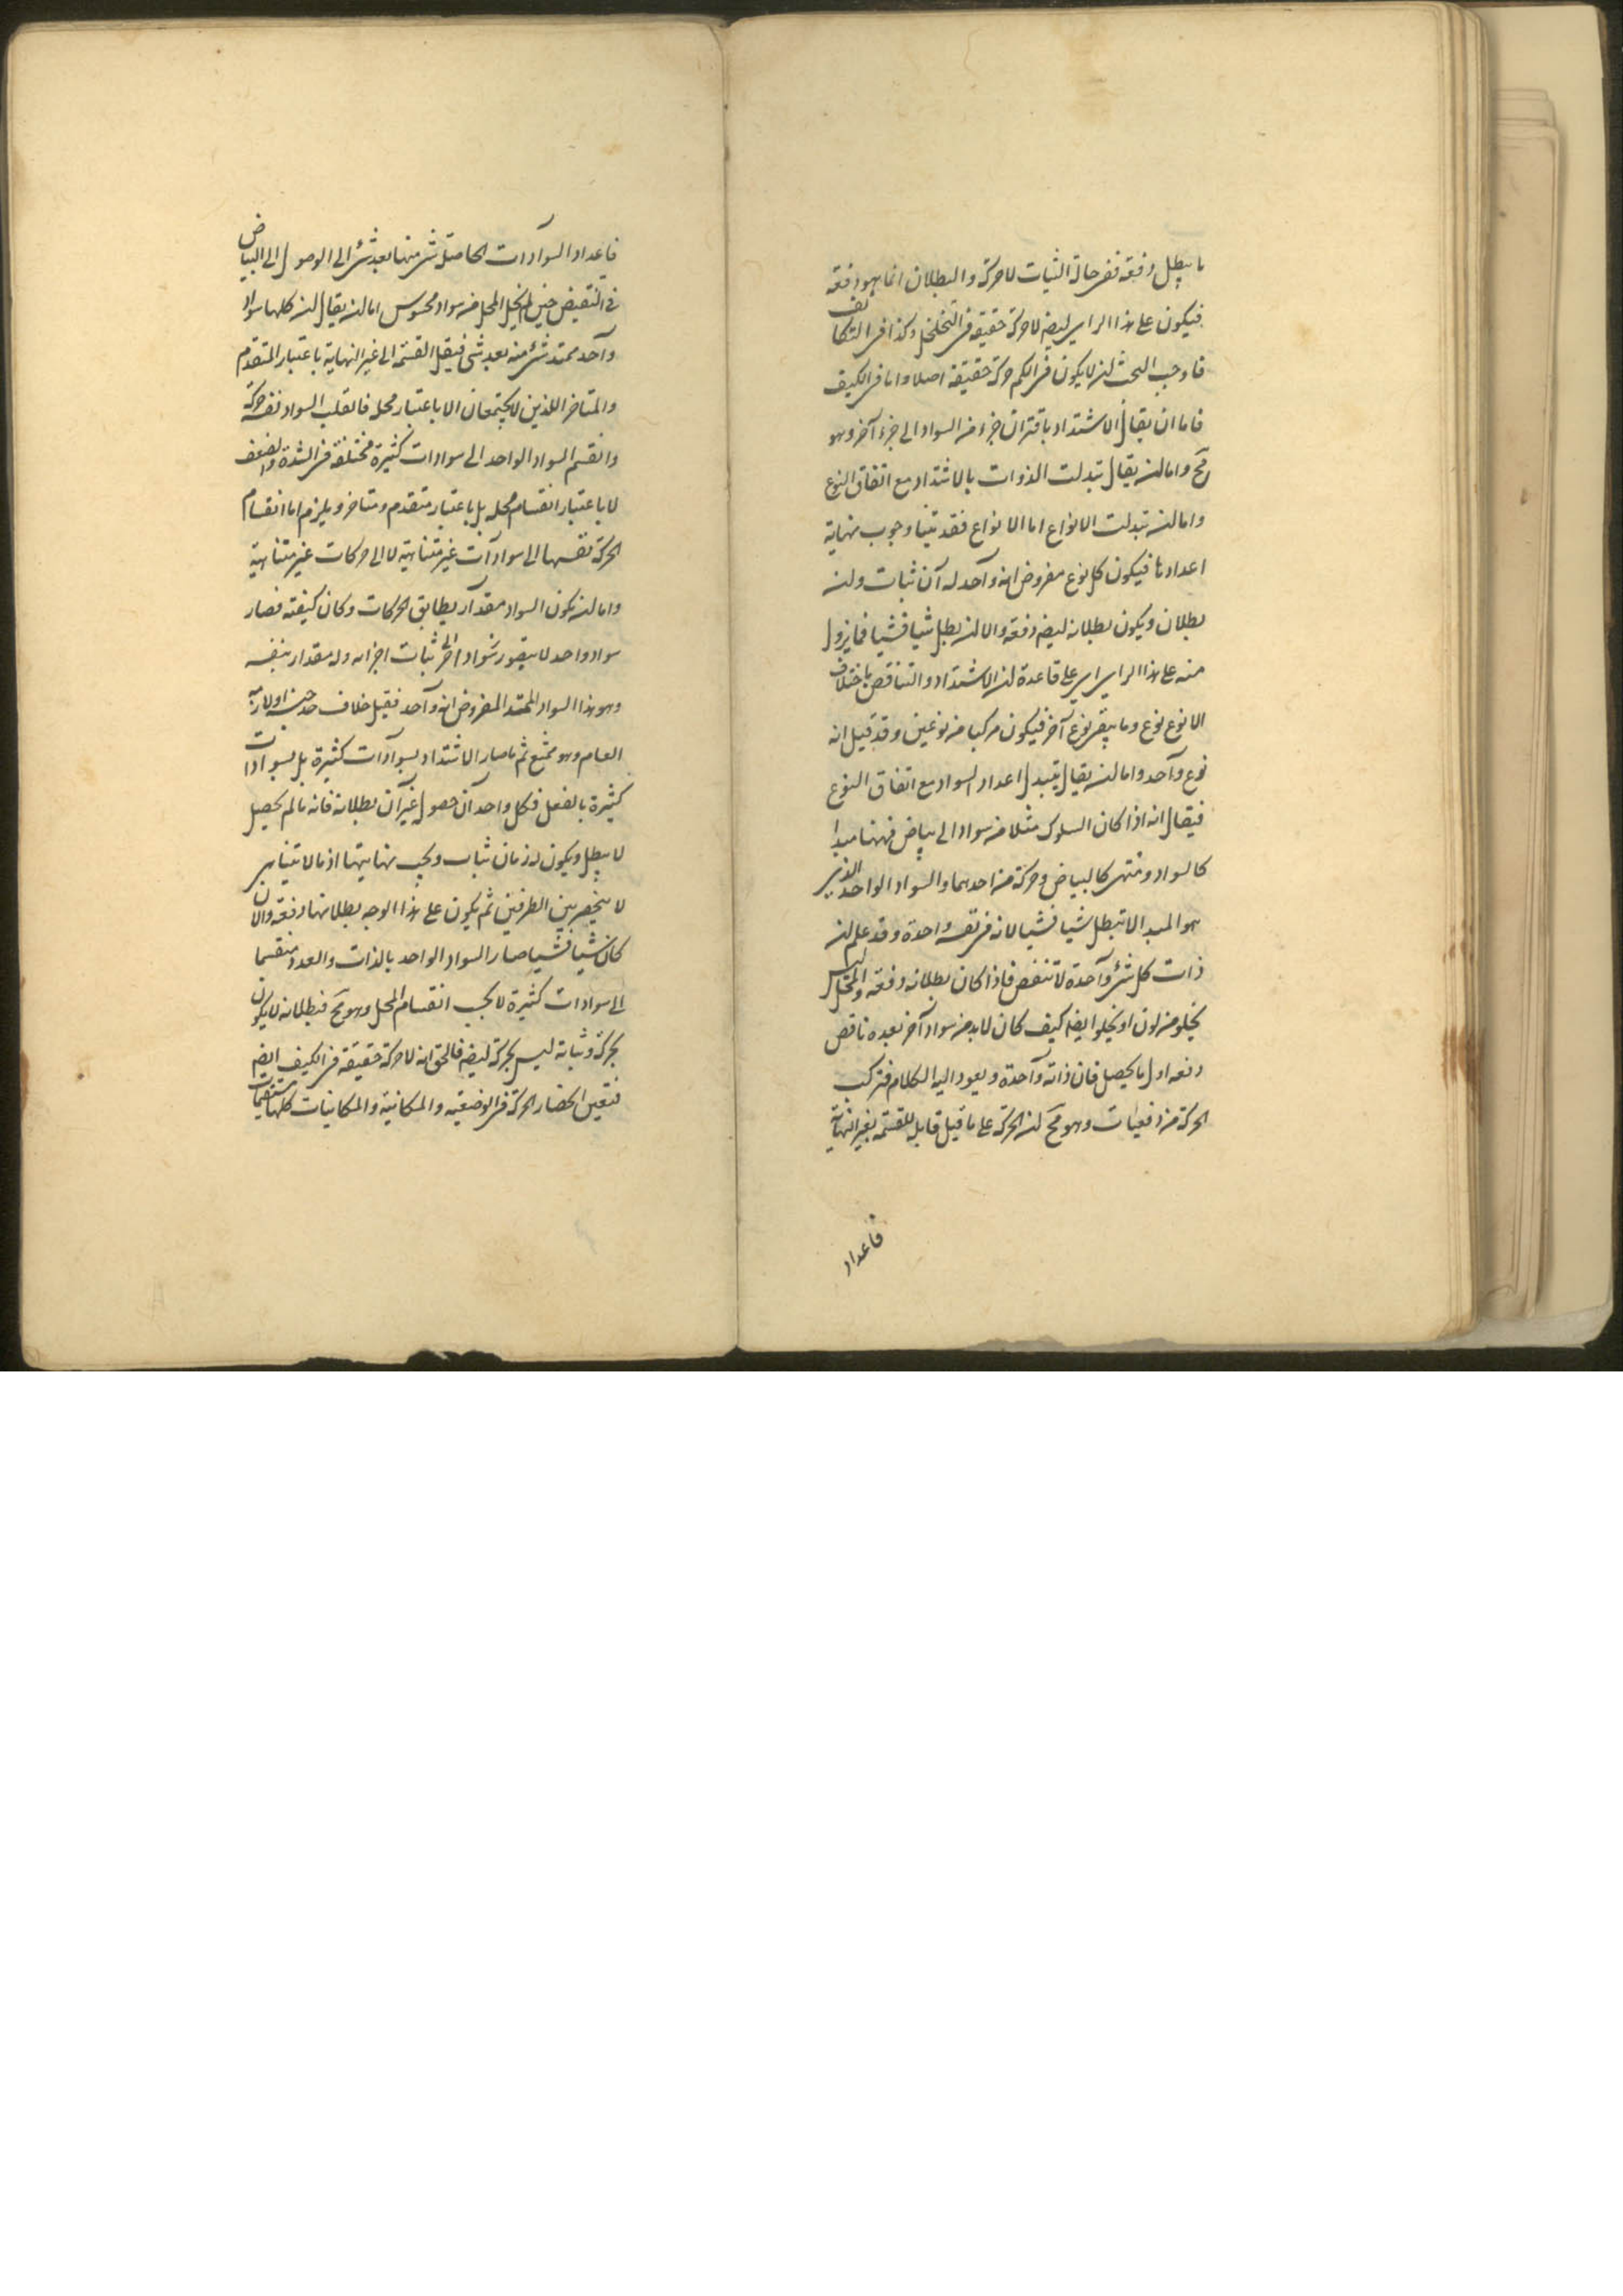 ما يبطل دفعة ففى حالة الثبات لا حركة والبطلان انما هو دفعة
فيكون على هذا الراى ايضا لا حركة حقيقة فى التخلخل وكذا فى التكاثف
فاوجب البحث ان لا يكون فى الكم حركة حقيقة اصلا واما فى الكيف
فاما ان يقال الاشتداد باقتران جزء من السواد الى جزء آخر وهو
مح واما ان يقال تبدلت الذوات بالاشتداد مع اتفاق النوع
واما ان تبدلت الانواع اما الانواع فقد تبينا وجوب نهاية
اعدادها فيكون كل نوع مفروض انه واحد له آن ثبات وان
بطلان ويكون بطلانه ايضا دفعة والا ان يبطل شيا فشيا فما يزول
منه على هذا الراى اى على قاعدة ان الاشتداد والتناقص باختلاف
الانوع نوع وما يبقى نوع آخر فيكون مركبا من نوعين وقد قيل انه
نوع واحد واما ان يقال يتبدل اعداد السواد مع اتفاق النوع
فيقال انه اذا كان السلوك مثلا من سواد الى بياض فههنا مبدا
كالسواد ومنتهى كالبياض وحركة من احدهما والسواد الواحد الذى
هو المبدا لا تبطل شيا فشيا لانه فى نفسه واحدة وقد علم ان
ذات كل شئ واحدة لا تنقص فاذا كان بطلانه دفعة والمحل ليس
يخلو من لون او يخلو ايضا كيف كان لا بد من سواد آخر بعده ناقص
دفعه اول ما يحصل فان ذاته واحدة ويعود اليه الكلام فتركب
الحركة من دفعيات وهو مح لان الحركة على ما قيل قابلة للقسمة بغير النهاية
فاعداد
فاعداد السوادات الحاصلة شئ منها بعد شئ الى الوصول الى البياض
فى النقيض حين لم يخل المحل من سواد محسوس اما ان يقال ان كلها سواد
واحد ممتد شئ منه بعد شئ فيقبل القسمة الى غير النهاية باعتبار المتقدم
والمتاخر اللذين لا يجتمعان الا باعتبار محل فانقلب السواد نفسه حركة
وانقسم السواد الواحد الى سوادات كثيرة مختلفة فى الشدة والضعف
لا باعتبار انقسام محله بل باعتبار متقدم ومتاخر ويلزم اما انقسام
الحركة نفسها الى سوادات غير متناهية لا الى حركات غير متناهية
واما ان يكون السواد مقدار يطابق الحركات وكان كيفية فصار
سواد واحد لا يتصور سواد آخر ثبات اجزاه وله مقدار بنفسه
وهو هذا السواد الممتد المفروض انه واحد فقيل خلاف
العام وهو ممتنع ثم ما صار الاشتداد بسوادات كثيرة بل بسوادات
كثيرة بالفعل فكل واحد آن حصول غير آن بطلانه فانه ما لم يحصل
لا يبطل ويكون له زمان ثبات ويجب نهايتها اذ ما لا يتناهى
لا ينحصر بين الطرفين ثم يكون على هذا الوجه بطلانها دفعة والا
كان شيا فشيا صار السواد الواحد بالذات والعدد منقسما
الى سوادات كثيرة لا بحسب انقسام المحل وهو مح فبطلانه لا يكون
بحركة وثباته ليس بحركة ايضا فالحق انه لا حركة حقيقة فى الكيف ايضا
فتعين انحصار الحركة فى الوضعية والمكانية والمكانيات كلها